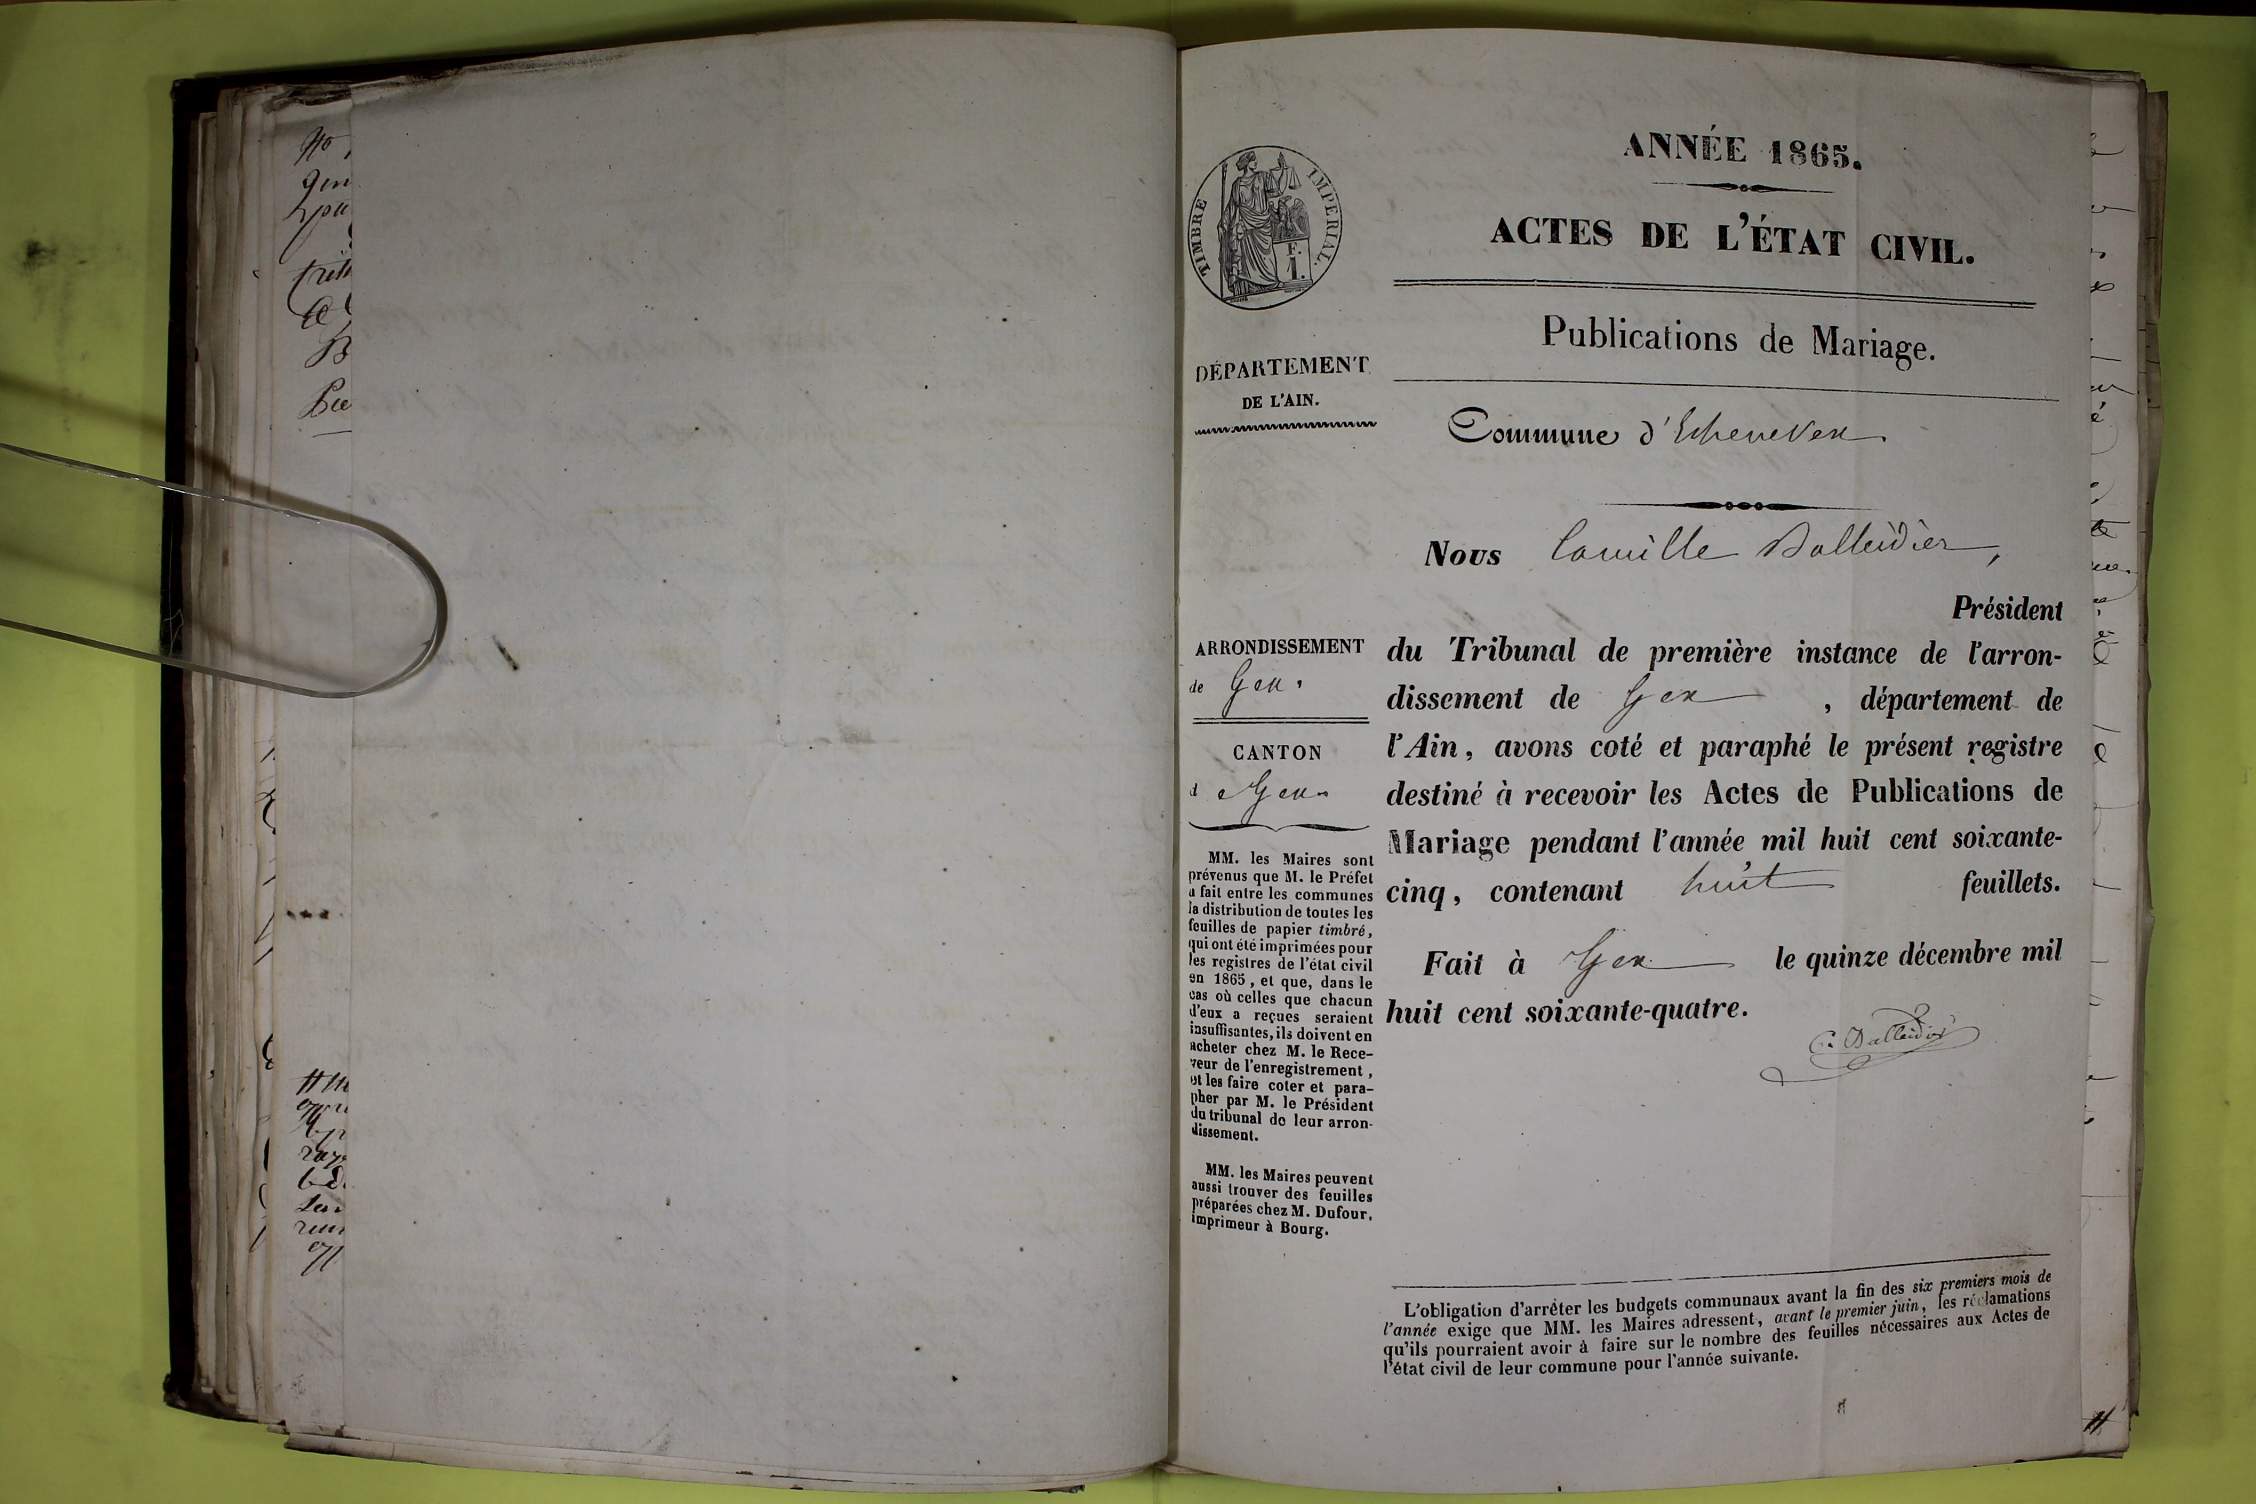 ANNÉE 1865.
ACTES DE L'ÉTAT CIVIL.
TIMBRE IMPÉRIAL.
F.
1.
Publications de Mariage.
DÉPARTEMENT
DE L'AIN.
Commune d'Echenevex
Nous Camille Balleidier,
Président
ARRONDISSEMENT
de Gex.
CANTON
de Gex
du Tribunal de première instance de l'arron-
dissement de Gex, département de
l'Ain, avons coté et paraphé le présent registre
destiné à recevoir les Actes de Publications de
Mariage pendant l'année mil huit cent soixante-
cinq, contenant huit feuillets.
Fait à Gex le quinze décembre mil
huit cent soixante-quatre.
C. Balleidier
MM. les Maires sont
prévenus que M. le Préfet
a fait entre les communes
la distribution de toutes les
feuilles de papier timbré,
qui ont été imprimées pour
les registres de l'état civil
en 1865, et que, dans le
cas où celles que chacun
d'eux a reçues seraient
insuffisantes, ils doivent en
acheter chez M. le Rece-
veur de l'enregistrement,
et les faire coter et para-
pher par M. le Président
du tribunal de leur arron-
dissement.
MM. les Maires peuvent
aussi trouver des feuilles
préparées chez M. Dufour,
imprimeur à Bourg.
L'obligation d'arrêter les budgets communaux avant la fin des six premiers mois de
l'année exige que MM. les Maires adressent, avant le premier juin, les réclamations
qu'ils pourraient avoir à faire sur le nombre des feuilles nécessaires aux Actes de
l'état civil de leur commune pour l'année suivante.